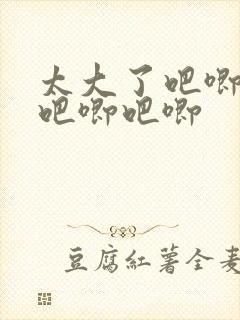 太大了吧唧
吧唧吧唧
豆腐紅薯全麦